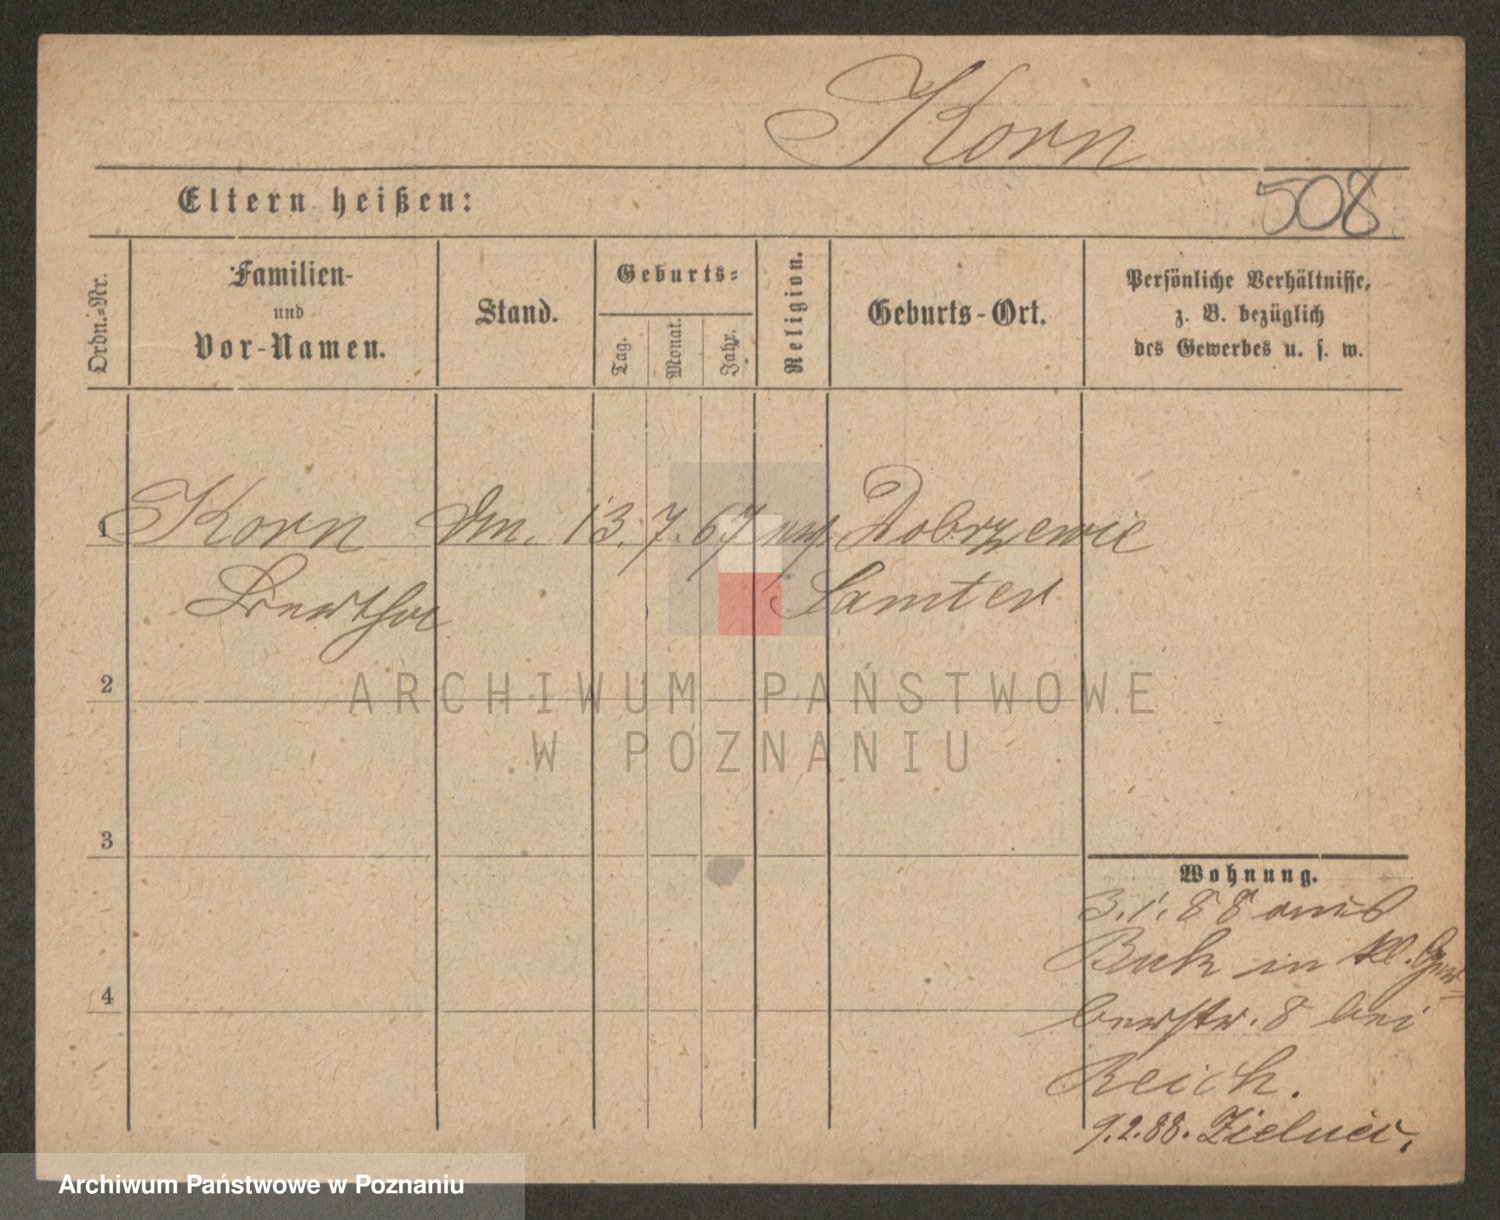 Korn
Eltern heißen:
508
Ordn.-Nr.
Familien-
und
Vor-Namen.
Stand.
Geburts-
Tag.
Monat.
Jahr.
Religion.
Geburts-Ort.
Persönliche Verhältnisse,
z. B. bezüglich
des Gewerbes u. s. w.
1 Korn 13. 7. 67 Dobrzewie
Bertha Samter
2
ARCHIWUM PAŃSTWOWE
W POZNANIU
3
Wohnung.
3.1.88 aus
Buk in kl. Ger-
berstr. 8 bei
4
Reich.
9.2.88.
Archiwum Państwowe w Poznaniu